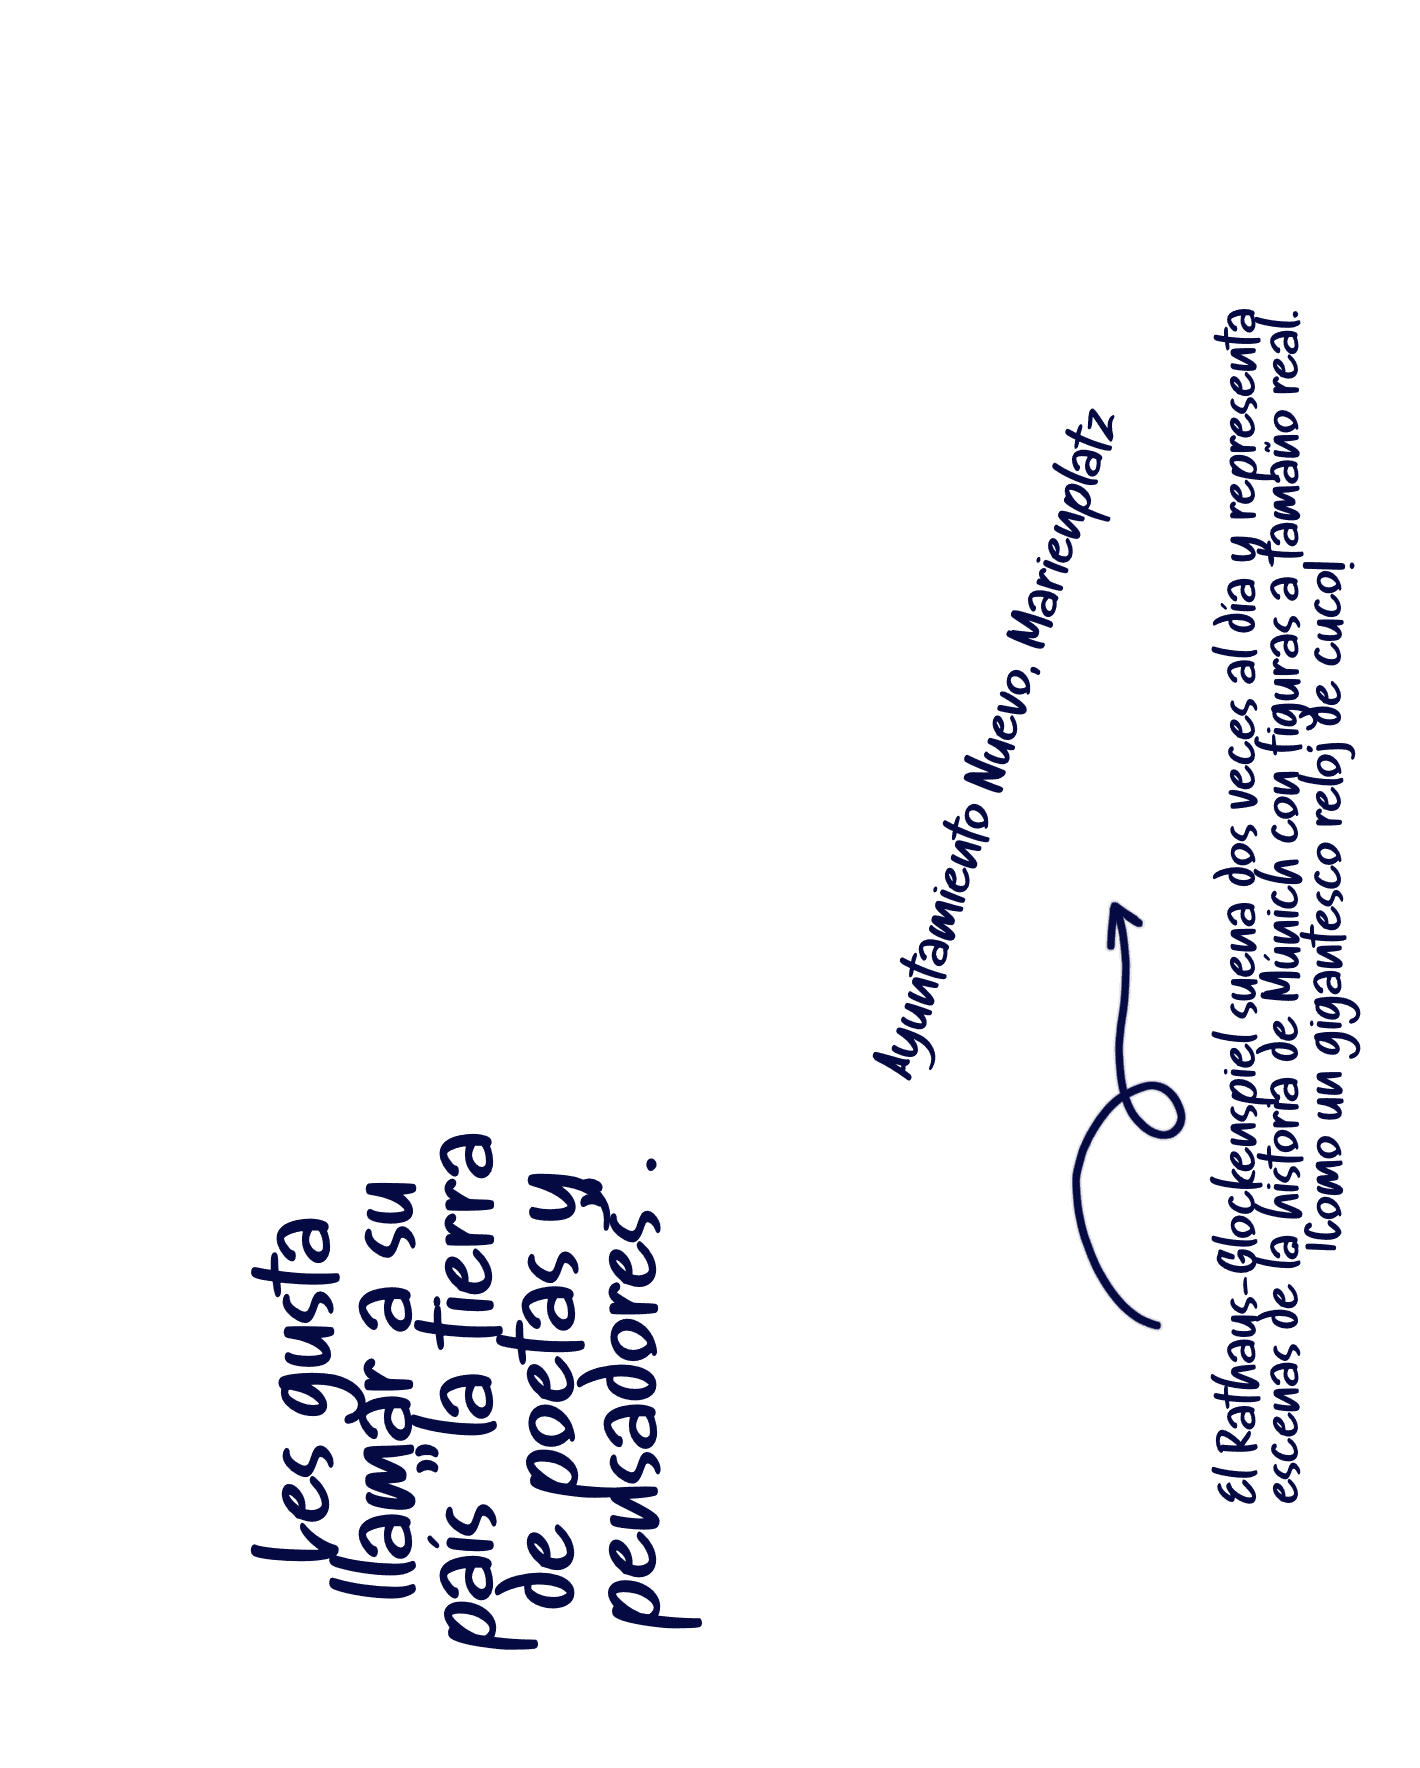 Les gusta
llamar a su
país "la tierra
de poetas y
pensadores".
Ayuntamiento Nuevo, Marienplatz
El Rathaus-Glockenspiel suena dos veces al día y representa
escenas de la historia de Múnich con figuras a tamaño real.
¡Como un gigantesco reloj de cuco!